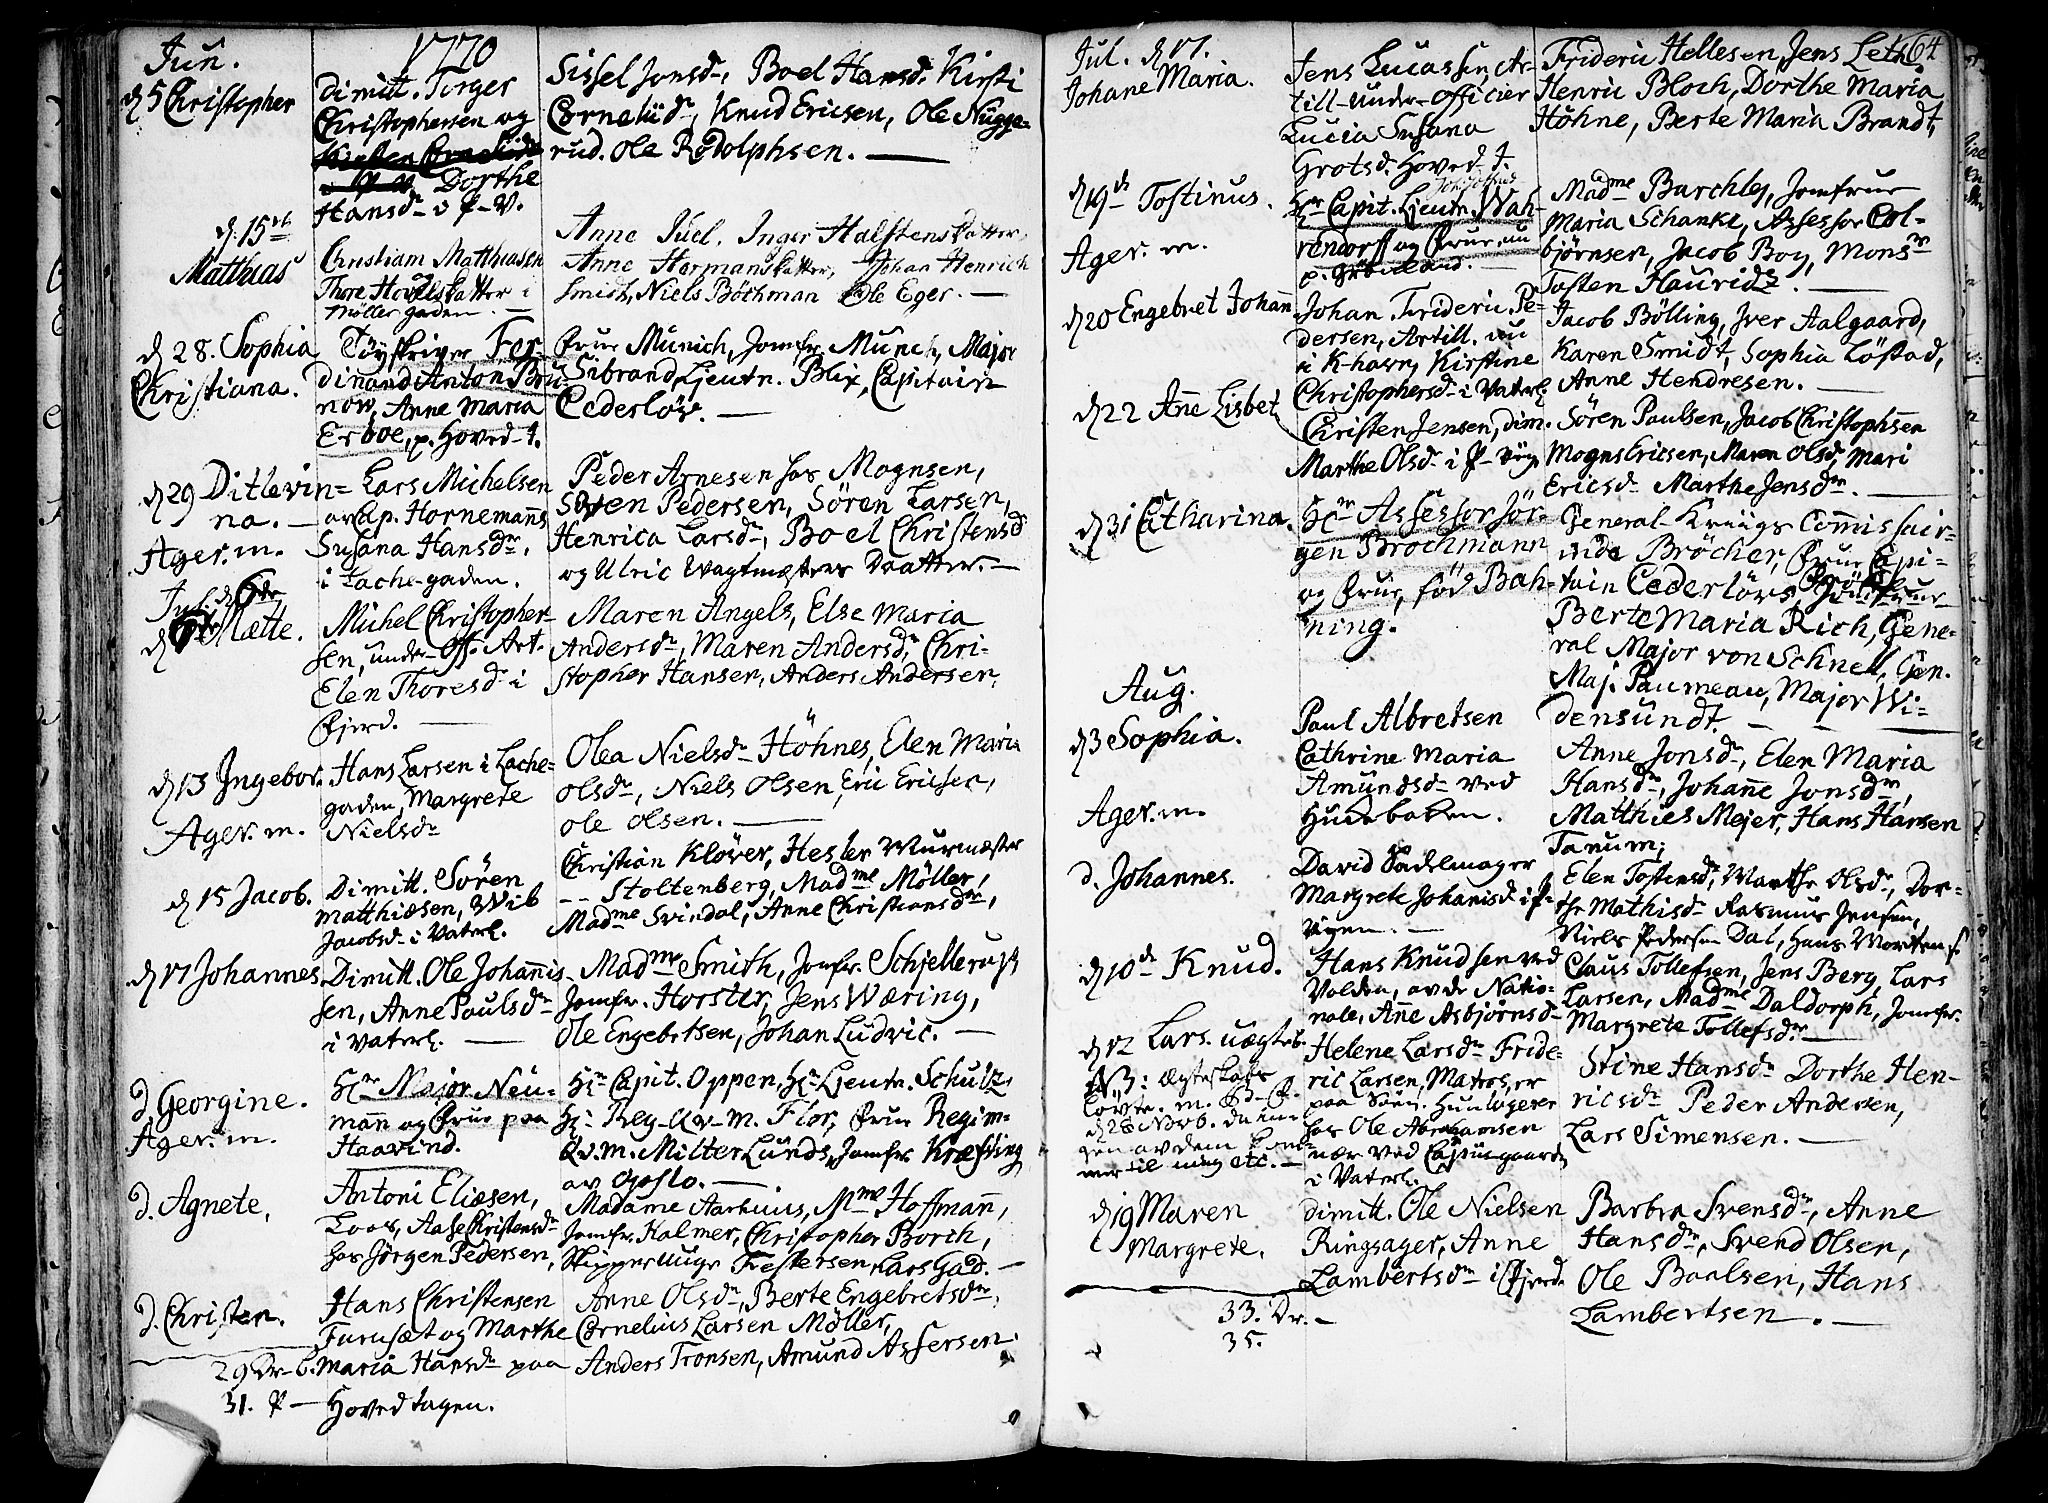 1770
Jun.
d 5 Christopher
Dimitt. Torger
Christophersen og
Dorthe
Hansdr i P-V.
Sissel Jonsd-, Boel Hansd, Kirsti
Corneliid-, Knud Ericsen, Ole Nugge-
rud. Ole Rodolphsen.
d. 15de
Matthias
Christiam Matthiasen
og
Thore Hovelsdatter i
Møllergaden.
Anne Juel. Inger Halstensdatter,
Anne Hermansdatter, Johan Henrich
Smidt, Niels Böthman Ole Eger.
d 28. Sophia
Christiana.
Töyskriver Fer-
dinand Anton Bru-
now, Anne Maria
Erboe, p. Hoved-t.
Frue Munich, Jomfr. Münch, Major
Sibrand, Ljeutn. Blix, Capitain
Cederlöv.
d 29 Ditlevin=
na.
Ager. m.
Lars Michelsen
av Cap. Hornemanns
Susana Hansdr,
i Lache-gaden.
Peder Arnesen hos Mognsen,
Soren Pedersen, Sören Larsen,
Henrica Larsdr, Boel Christensd
og Ulric Vagtmesters Daatter.
Jul. d 6de
d Mette.
Michel Christopher-
sen, under-Off. Art.
Elen Thoresd- i
Fjerd.
Maren Angels, Else Maria
Andersdr, Maren Andersd, Chri-
stopher Hansen, Anders Andersen,
d 13 Ingebor.
Ager. m.
Hans Larsen i Lache-
gaden, Margrete
Nielsdr
Olea Nielsdr Höhnes, Elen Maria
Olsdr, Niels Olsen, Eric Ericsen,
Ole Olsen.
d 15 Jacob.
Dimitt. Sören
Matthiæsen, Wib
Jacobsd- i Vaterl.
Christian Klöver, Hesler Muurmæster
-- Stoltenberg, Madme Möller,
Madme Svindal, Anne Christiansdr,
d 17 Johannes
Dimitt. Ole Johannis-
sen, Anne Paulsdr
i Vaterl.
Madme Smith, Jomfr. Schjellerup,
Jomfr. Horster, Jens Wæring,
Ole Engebretsen, Johan Ludvic.
d. Georgine.
Ager. m.
Hr Major Neu-
mann og Frue paa
Haavind.
Hr Capit. Oppen, Hr Ljeutn. Schultz,
Hr Reg-Qv-m. Flor, Frue Regim-
Qv. m. Milter Lunds, Jomfr. Kræfting
av Opslo.
d. Agnete,
Antoni Eliæsen,
Loos, Aase Christensdr
hos Jörgen Pedersen,
Madame Aarhuus, Mme Hoffmann,
Jomfr. Kalmer, Christopher Borch,
Skipper Auge Festersen, Lars Gad.
d. Christen.
Hans Christensen
Furusæt og Marthe
Maria Hansdr paa
Hovedtagen.
Anne Olsdr, Berte Engebretsdr,
Cornelius Larsen Möller,
Anders Tronsen, Amund Assersen.
29 Dr-b.
31. P
64
Jul. d 17.
Johane Maria.
Jens Lucassen, Ar-
till-Under-Officier
Lucia Susana
Grotsd. Hoved-t.
Frideric Hellesen, Jens Leth,
Henric Bloch, Dorthe Maria
Höhne, Berte Maria Brandt,
d 19de Tostinus.
Ager. m.
Hr Capit. Ljeutn. Wah-
rendorff og Frue, nu
p. Grönland.
Madme Barchley, Jomfrue
Maria Schanke, Assessor Col-
björnsen, Jacob Boy, Monsr
Tosten Hauridz.
d 20 Engebret Johan
Johan Frideric Pe-
dersen, Artill. nu
i K-havn, Kirstine
Christophersd- i Vaterl.
Jacob Bölling, Iver Aalgaard,
Karen Smidt, Sophia Löstad,
Anne Hendresen.
d 22 Ane Lisbet
Christen Jensen, dim.
Marthe Olsd- i P-vign
Sören Paulsen, Jacob Christophsen
Mogns Ericsen, Maren Olsd, Mari
Ericsd- Marthe Jensdr.
d 31 Catharina.
Hr Assessor Jör-
gen Brochmann
og Frue, fød Bah-
ning.
General-Kriigs Commissair-
inde Bröcher, Frue Capi-
tain Cederlövs,
Berte Maria Rich, Gene-
ral Major von Schnell, Gen.
Maj. Paumeau, Major Wi-
densundt.
Aug.
d 3 Sophia.
Ager. m.
Paul Albretsen
Cathrine Maria
Amundsd- ved
Huusbaken.
Anne Jonsdr, Elen Maria
Hansdr, Johanne Jonsdr,
Matthies Mejer, Hans Hansen
Tanum;
d. Johannes.
David Sadelmager
Margrete Johanisd- i P-
viigen.
Elen Tostensdr, Marthe Olsdr, Dor-
the Mathisdr Rasmus Jensen,
Niels Pedersen Dal, Hans Mortens.
d 10de Knud.
Hans Knudsen ved
Volden, av de Natio-
nale, Anne Asbjörnsd-
Claus Tollefsen, Jens Berg, Lars
Larsen, Madme Daldorph, Jomfr.
Margrete Tollefsdr.
d 12 Lars. uægteb.
NB: Ægteskabs
löfte
d 28 Novb. da in-
gen av dem kom-
mer til mig etc.
Helene Larsdr Fride-
ric Larsen, Matros, er
paa Söen. Hun logerer
hos Ole Abrahamsen
nær ved
i Vaterl.
Stine Hansdr Dorthe Hen-
ricsdr Peder Andersen,
Lars Simensen.
d 19 Maren
Margrete.
Dimitt. Ole Nielsen
Ringsager, Anne
Lambertsdr i Fjerd.
Barbra Svensdr, Anne
Hansdr, Svend Olsen,
Ole Boelsen, Hans
Lambertsen.
33. Dr.
35.